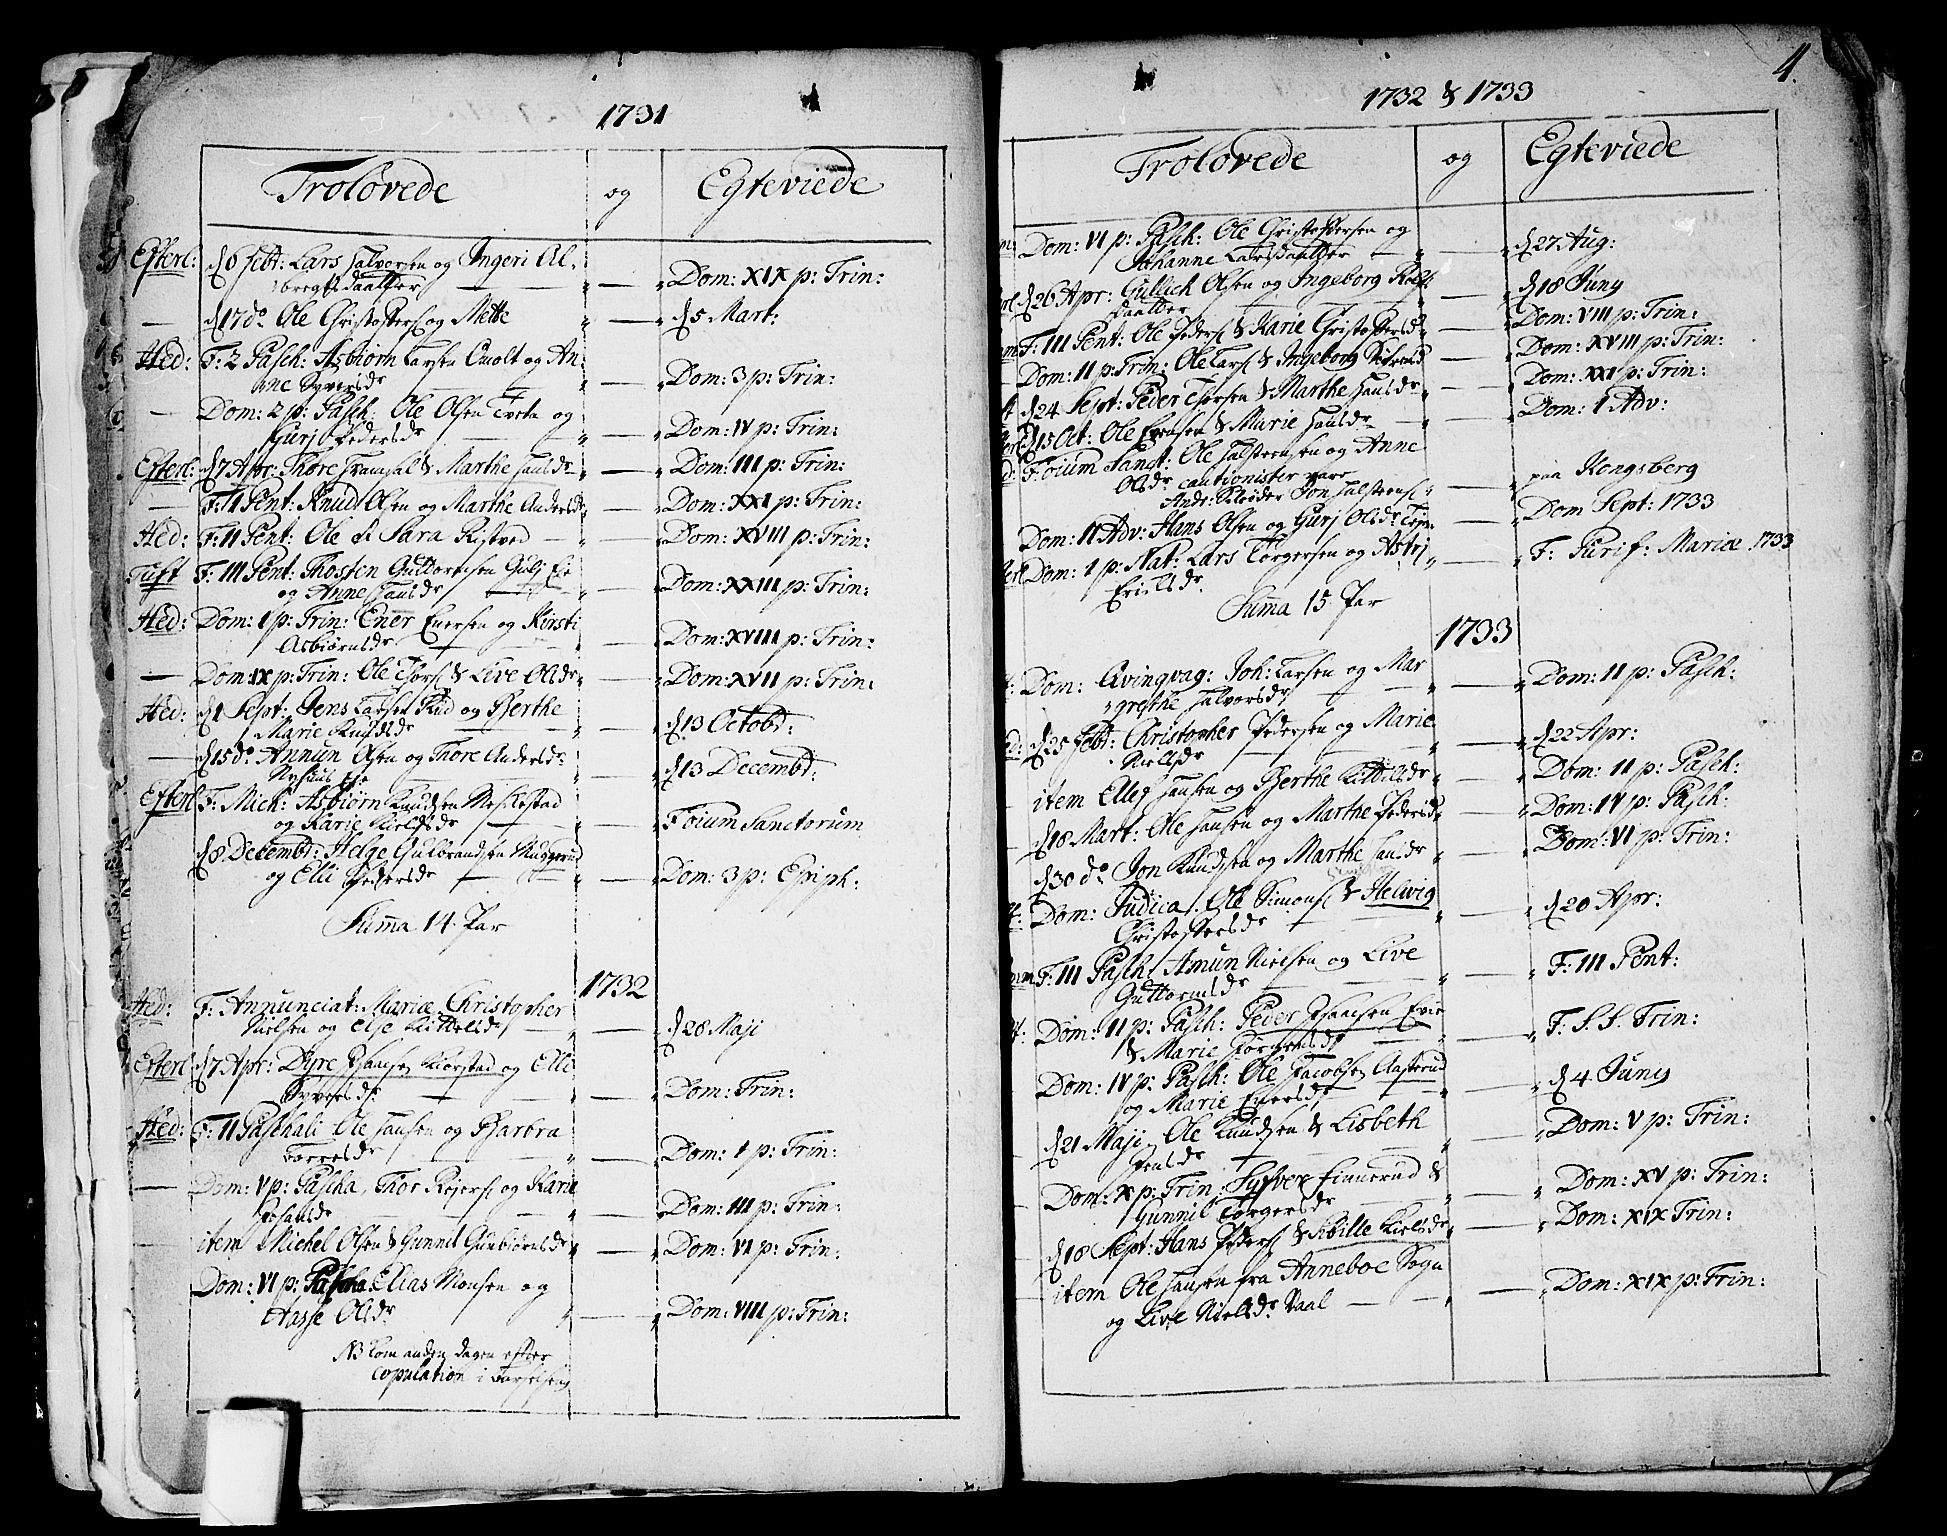 1731
Trolovede og Egteviede
Efterl: d 8 Febr: Lars Halvorsen og Ingeri Al-
bregtsdaatter — „ — „ Dom: XIX p: Trin:
— d 17 do Ole Christophers og Mette „ — „ d 5 Mart:
Hed: F: 2 Pasch: Asbiørn Larsen Omolt og An-
ne Syversdr „ — „ Dom: 3 p: Trin:
— Dom: 2 p: Pasch: Ole Olsen Tveta og
Gurj Pedersdr „ — „ Dom: IV p: Trin:
Efterl: d 7 Apr: Thore Framsal & Marthe Hansdr — Dom: III p: Trin:
— F: II Pent: Knud Olsen og Marthe Andersdr — Dom: XXI p: Trin:
Hed: F: II Pent: Ole & Sara Ristved — Dom: XVIII p: Trin:
Tuft F: III Pent: Thosten Guttormsen Gulj Eje
og Anne Hansdr — Dom: XXIII p: Trin:
Hed: Dom: I p: Trin: Ener Enersen og Kirsti
Asbiørnsdr — Dom: XVIII p: Trin:
— Dom: IX p: Trin: Ole Thors & Live Olsdr — Dom: XVII p: Trin:
Hed: d 1 Sept: Jens Larsen Rud og Berthe
Marie Knudsdr — d 13 Octobr:
— d 15 do Annun Olsen og Thore Andersdr
Nyhuus Eje — d 13 Decembr:
Efterl F: Mich: Asbiørn Knudsen Meslestad
og Karie Nielsdr — Foium Sanctorum
d 8 Decembr: Helge Gulbrandsen Muggerud
og Elli Pedersdr — Dom: 3 p: Epiph:
Suma 14. Par
1732
Hed: F: Annunciat: Mariæ Christopher
Nielsen og Else Kittelsdr — d 28 Maji
Efterl d 7 Apr: Dyre Hansen Kiørstad og Elli
Syversdr — Dom: Trin:
Hed: F: II Paschali Ole Hansen og Barbra
Torresdr — Dom: 1 p: Trin:
— Dom: V p: Pascha, Thor Rejers og Karie
Johansdr — Dom: III p: Trin:
— item Michel Olsen & Gunnil Gunbiørnsdr — Dom: VI p: Trin:
Dom: VI p: Pascha Elias Monsen og
Aasse Olsdr — Dom: VIII p: Trin:
NB kom anden dagen efter
copulation i Barselseng
4.
1732 & 1733
Trolovede og Egteviede
Dom: VI p: Pasch: Ole Christophersen og
Johanne Larsdaatter — d 27 Aug:
d 26 Apr: Gullich Olsen og Ingeborg Rolfs
daatter — d 18 Juny
F: III Pent: Ole Peders & Karie Christophersd — Dom: VIII p: Trin:
Dom: II p: Trin: Ole Lars & Ingeborg Sørensd — Dom: XVIII p: Trin:
d 24 Sept: Peder Thorsen & Marthe Hansdr — Dom: XXI p: Trin:
d 15 Oct: Ole Evensen & Marie Hansdr — Dom: 1 Adv:
Foium Sanct: Ole Halstensen og Anne
Olsdr cautionister vare
Ande: Skreider Jon Halstens — paa Kongsberg
Dom: II Adv: Hans Olsen og Gurj Olsdr — Dom Sept: 1733
Dom: 1 p: Nat: Lars Torgersen og Astrj
Erichsdr. — F: Purif: Mariæ 1733
Suma 15. Par
1733
Dom: Qvinqvag: Joh: Larsen og Mar
grethe Halvorsdr — Dom: II p: Pasch:
d 25 Febr: Christopher Pedersen og Marie
Nielsdr — d 22 Apr:
item Ellef Hansen og Berthe Kittilsdr — Dom: II p: Pasch:
d 18 Mart: Ole Hansen og Marthe Pedersd — Dom: IV p: Pasch:
d 30 do Jon Knudsen og Marthe Hansdr — Dom: VI p: Trin:
Dom: Judica: Ole Simons & Helwig
Christophersdr — d 20 Apr:
F: III Pasch: Amun Nielsen og Live
Guttormsdr — F: III Pent:
Dom: II p: Pasch: Peder Hansen Evie
& Marie Jørgensdr — F: S. S. Trin:
Dom: IV p: Pasch: Ole Jacobsen Aasterud
og Marie Enersdr — d 4 Juny
d 21 Maji Ole Knudsen & Lisbeth
Jensdr — Dom: V p: Trin:
Dom: X p: Trin: Syfver Finnerud &
Gunnil Torgersdr — Dom: XV p: Trin:
d 18 Sept: Hans Peders & Sibille Nielsdr — Dom: XIX Trin:
item Ole Hansen fra Anneboe Sogn
og Live Nielsdr Vaal — Dom: XIX p: Trin: